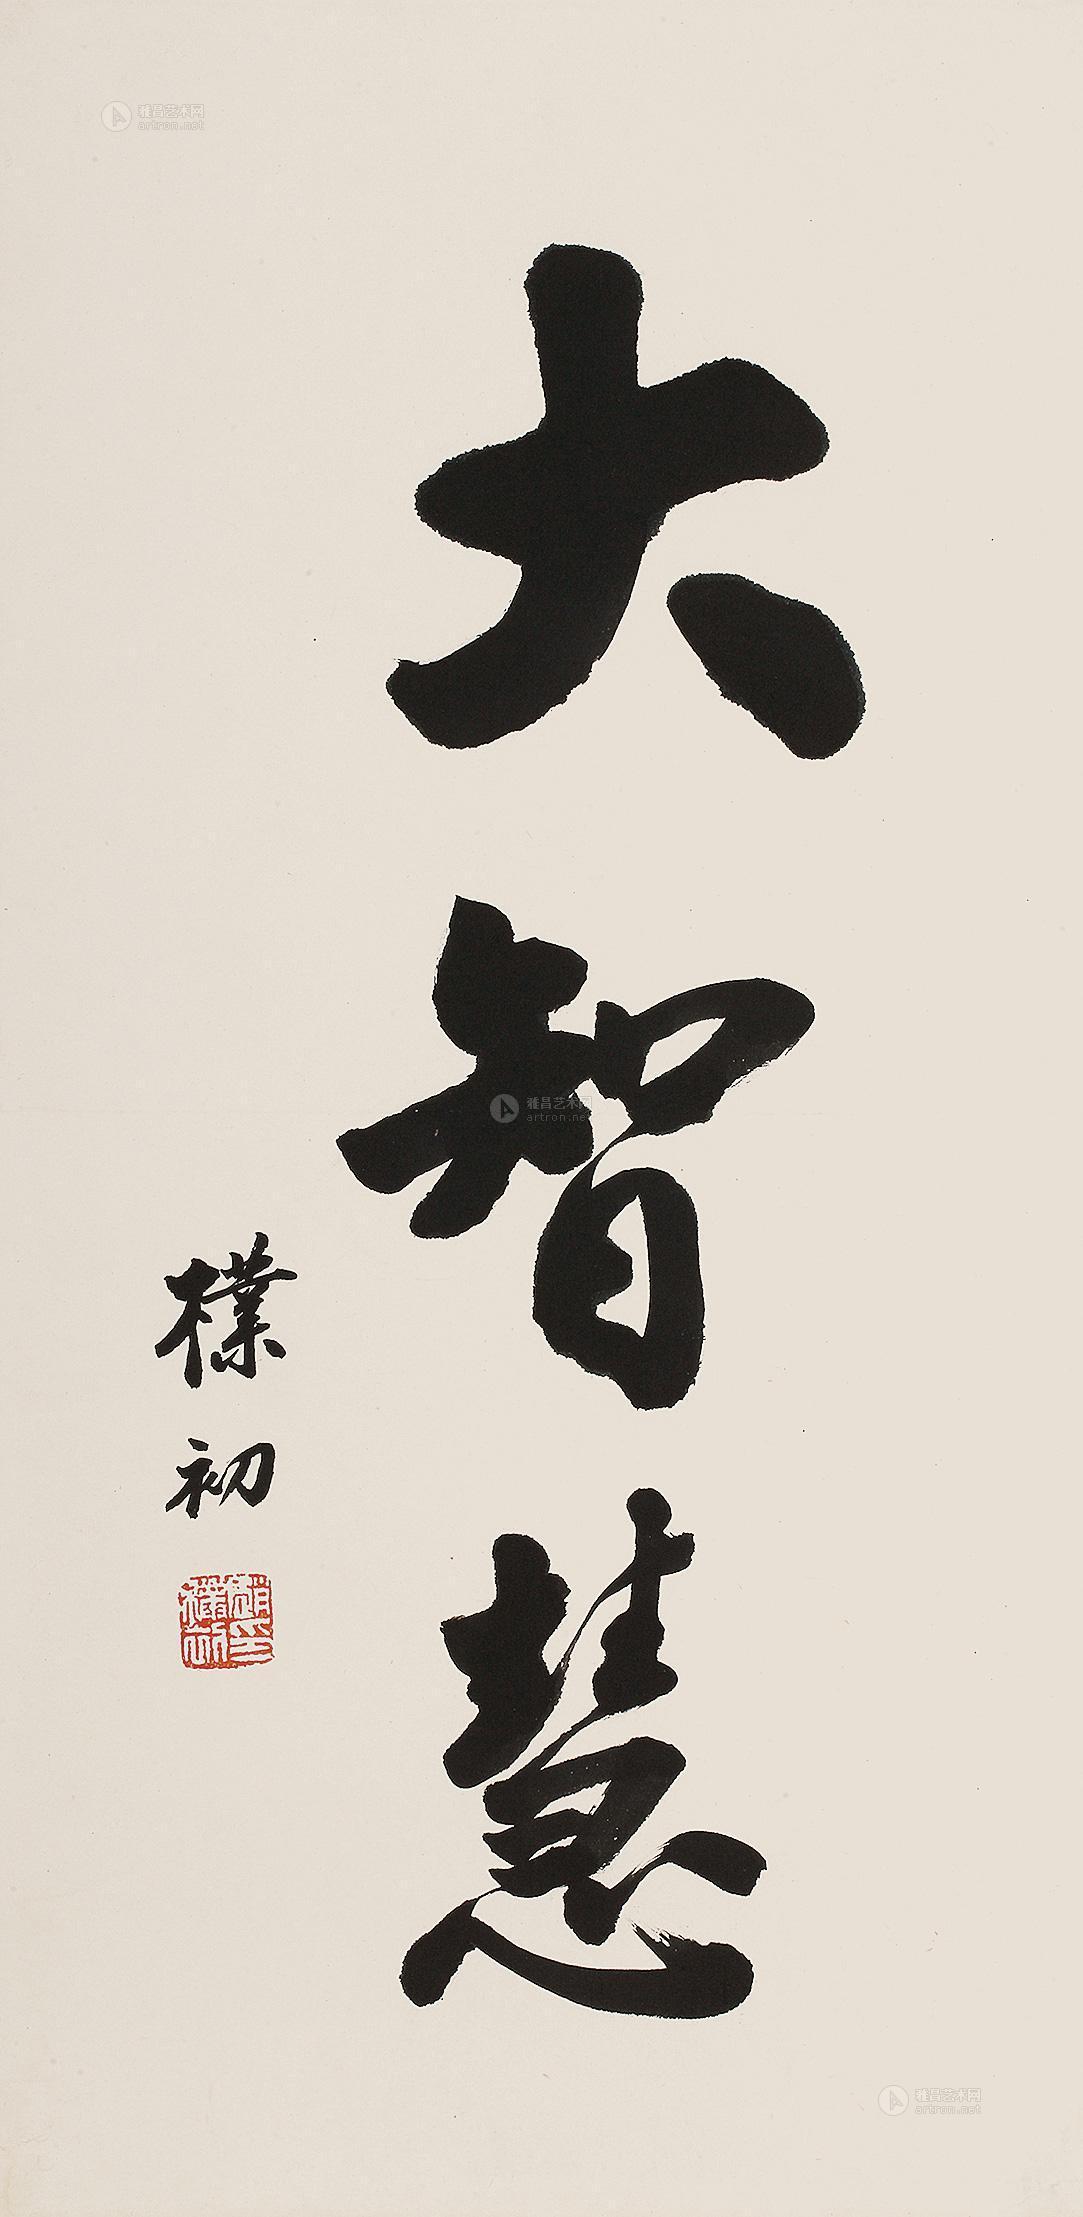 大智慧
樸初
趙樸初印
雅昌艺术网
artron.net
雅昌艺术网
artron.net
雅昌艺术网
artron.net